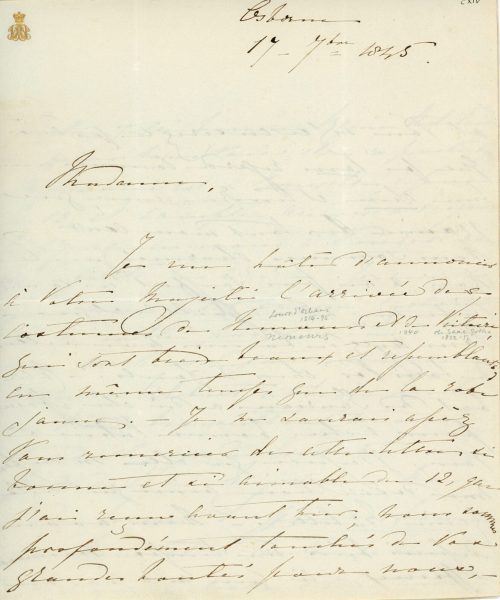 CXIV
Osborne
17 - 7bre 1845.
Madame,
Je me hâte d'annoncer
à Votre Majesté l'arrivée des
costumes de Nemours et de Victoire
Louis d'Orleans
1814-96
Nemours
1840
1822-57
qui sont bien beaux et ressemblants,
en même temps que de la robe
jaune. - Je ne saurais assez
Vous remercier de cette lettre si
bonne et si aimable du 12, que
j'ai reçue avant hier, nous sommes
profondément touchés de Vos
grandes bontés pour nous, -